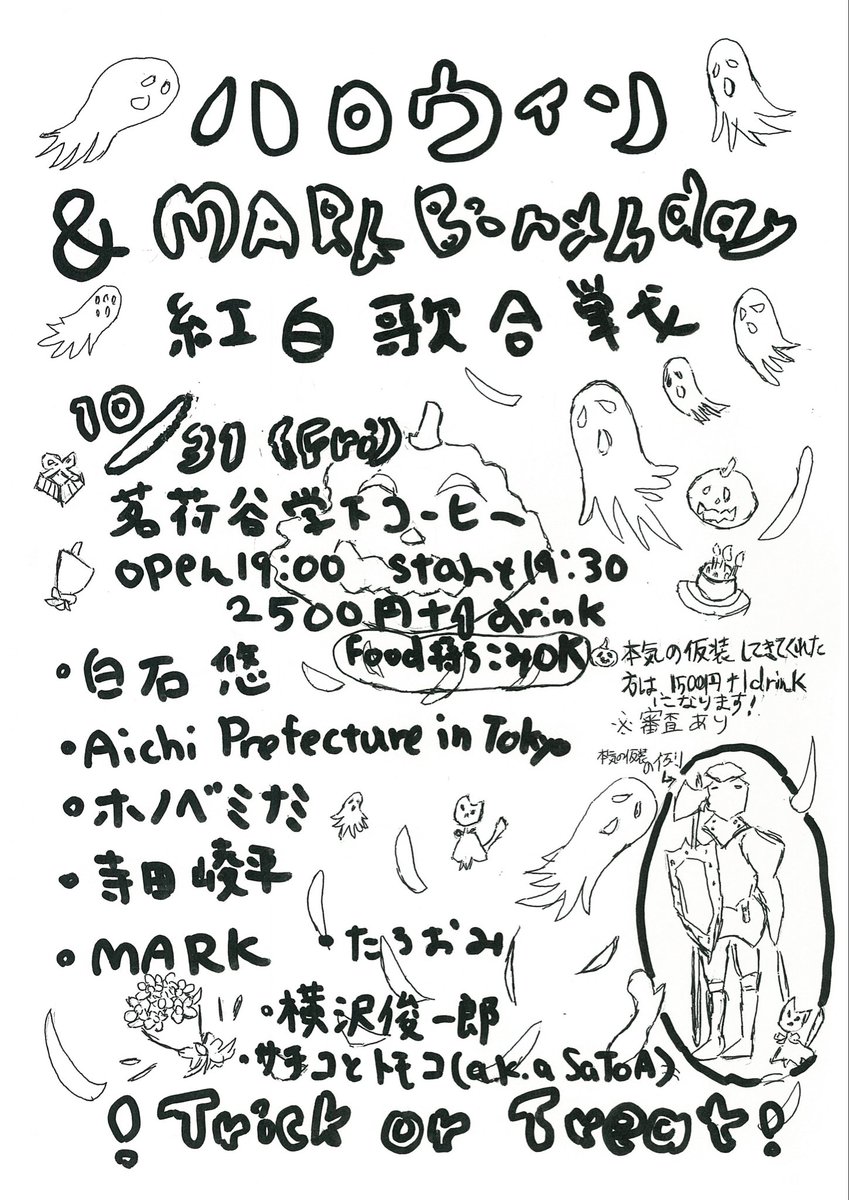 ハロウィン
& MARK Birthday
紅白歌合戦
10/31 (Fri)
茗荷谷学下コーヒー
open19:00 start19:30
2500円+1drink
Food持ちこみOK
本気の仮装してきてくれた
方は1500円+1drink
になります!
※審査あり
本気の仮装
の例り
・白石 悠
・Aichi Prefecture in Tokyo
・ホノベミだ
・寺田崚平
・MARK ・たろおみ
・横沢俊一郎
・サチコとトモコ(a.k.a SaToA)
!Trick or Treat!